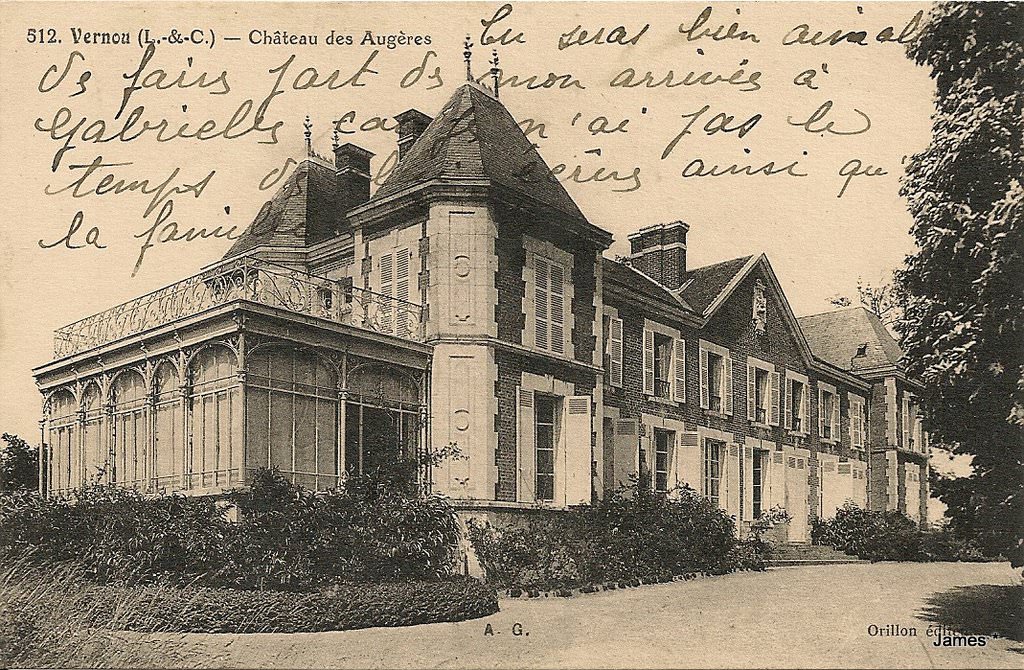 512. Vernou (L.-&-C.) — Château des Augères
tu seras bien aimable
de faire part de mon arrivée à
Gabrielle car je n'ai pas le
temps d' ainsi qu'
la
A. G.
Orillon
James